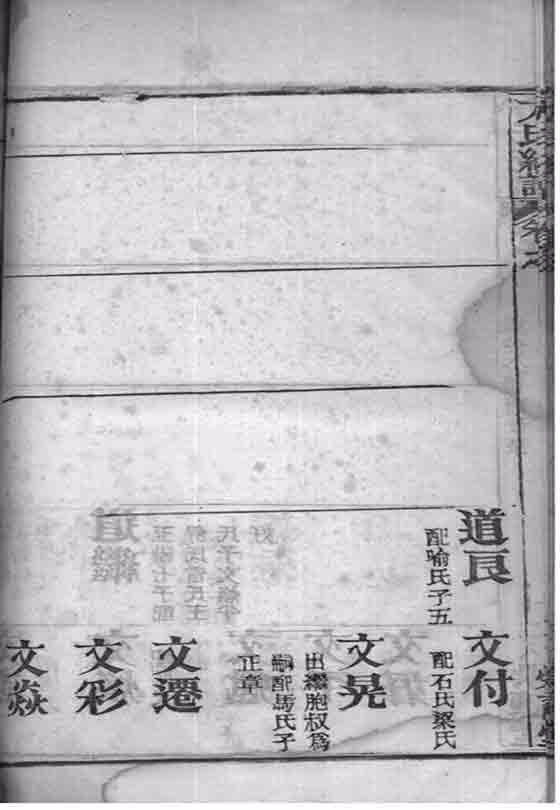 道
配喻氏子五
文付
配石氏梁氏
文晃
出繼胞叔爲
嗣配馬氏子
正章
文遷
文彩
文焱